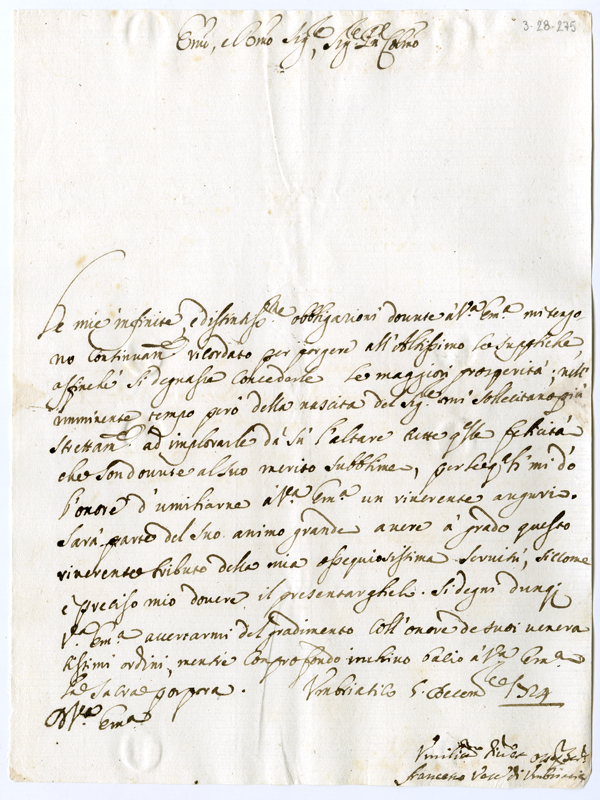 3-28-275
Emo, e Rmo Sigre, Sigre Pne Colmo
Le mie infinite, e distintissme obbligazioni dovute à Va Ema mi tengo
no continuante ricordato per porgere all'Altissimo le suppliche
affinché si degnasse concederle le maggiori prosperità; nell'
imminente tempo però della nascita del Sigre mi sollecitano più
strettamte ad implorarle dà sù l'altare tutte qlle felicità
che son dovute al suo merito subblime, per le qli mi dò
l'onore d'umiliarne à Va Ema un riverente augurio.
Sarà parte del suo animo grande avere à grado questo
riverente tributo della mia ossequiosissima servitù, siccome
è preciso mio dovere il presentarghele. Si degni dunqe
Va Ema accertarmi del gradimento coll'onore de suoi venera
tissimi ordini, mentre con profondo inchino bacio à Va Ema
la Sacra porpora. Umbriatico 5. Decembre 1724
D Va Ema
Umilissmo
Francesco Vesco di Umbriatico